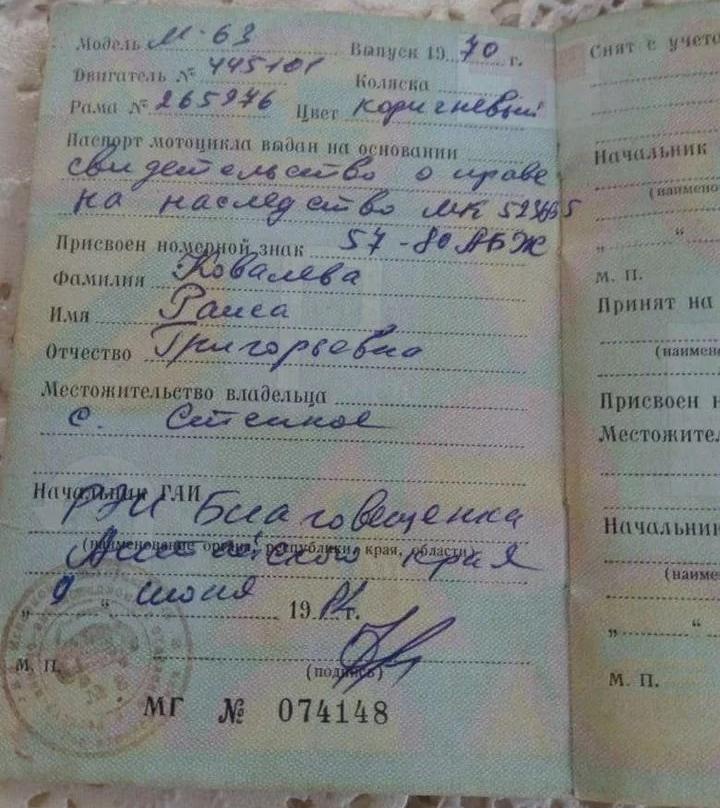 Модель М-63 Выпуск 1970 г.
Двигатель № 445101 Коляска
Рама № 265976 Цвет коричневый
Паспорт мотоцикла выдан на основании
свидетельство о праве
на наследство МК
Присвоен номерной знак 57-80 АБЖ
Фамилия Ковалева
Имя Раиса
Отчество Григорьевна
Местожительство владельца
с. Степное
Начальник ГАИ
РЭП Благовещенка
(наименование органа, республики, края, области)
Алтайского края
„ 9 “ июня 19 г.
М. П.
(подпись)
МГ № 074148
Снят с учета
Начальник
(наимено
„ “
М. П.
Принят на
(наимено
Присвоен н
Местожител
Начальник
(наиме
„ “
М. П.